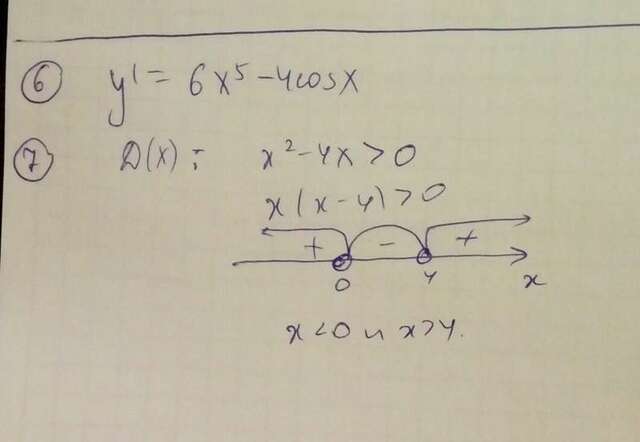 ⑥ y' = 6x⁵ - 4cosx
⑦ D(x): x² - 4x > 0
x(x - 4) > 0
+ - +
0 4 x
x < 0 и x > 4.